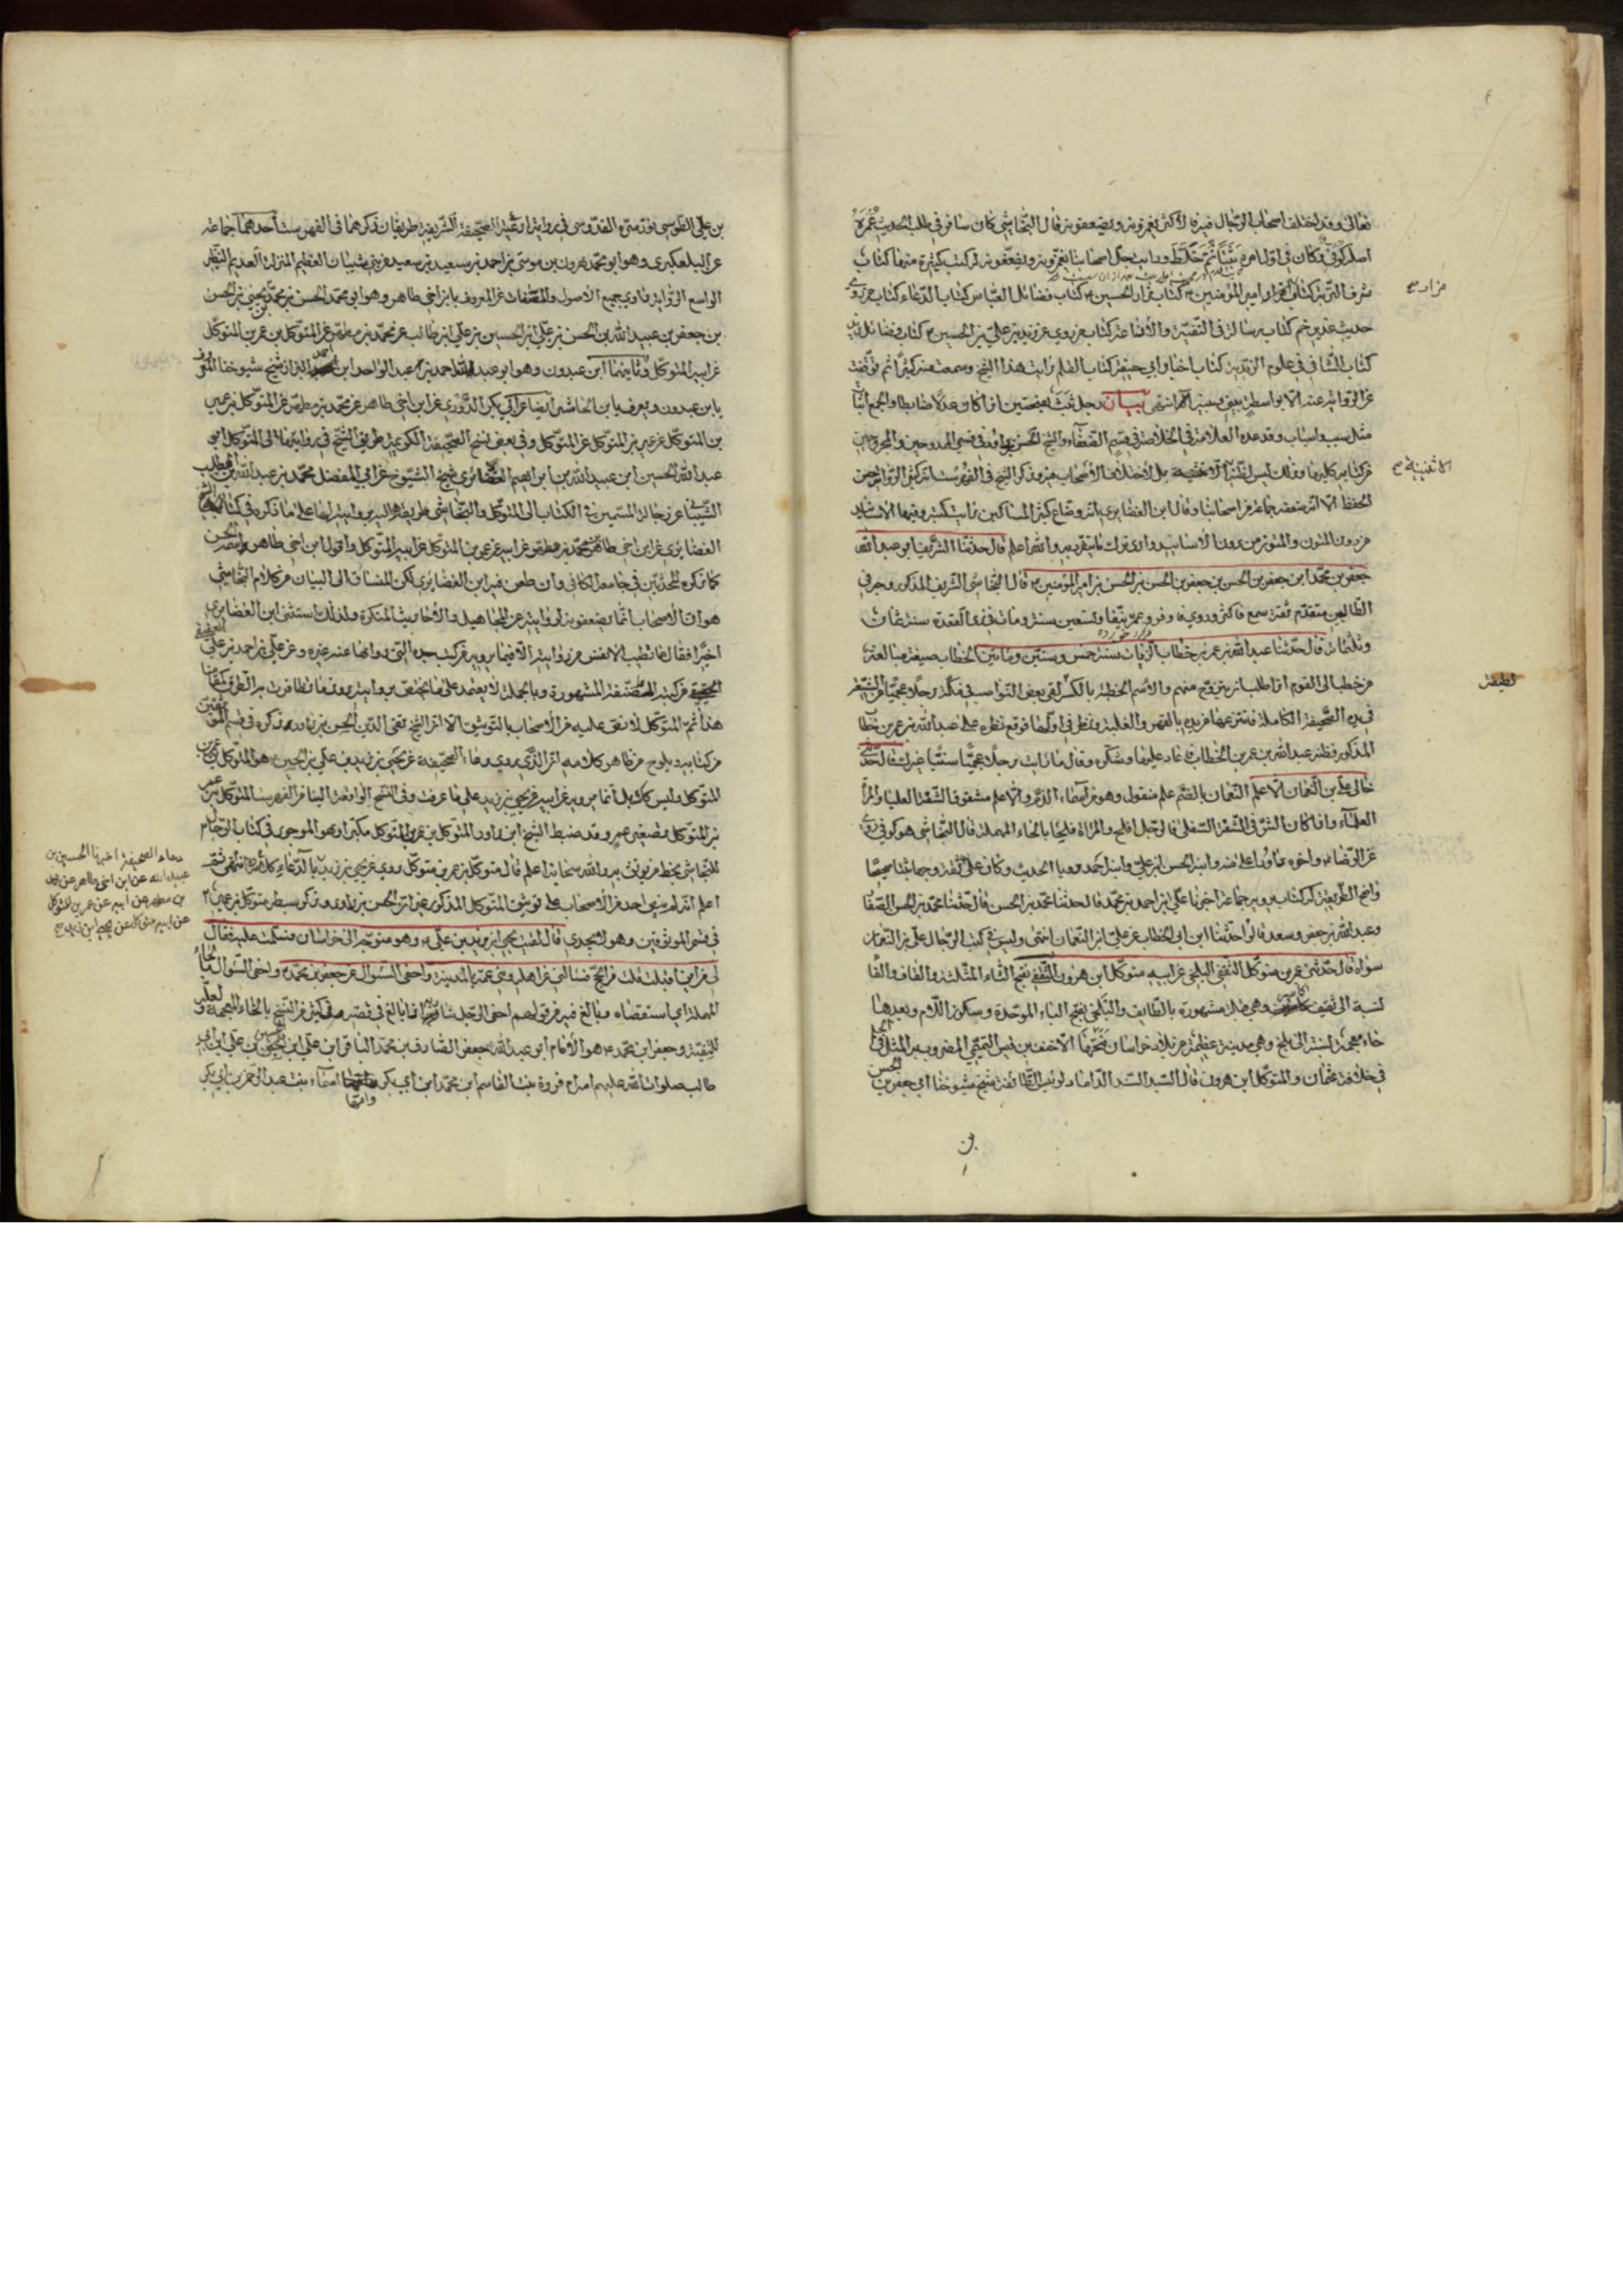 تعالى وقد اختلف اصحاب الرجال فيه فالاكثر يغمزونه ويضعفونه قال النجاشي كان سافر في طلب الحديث عمره
اصله كوفي وكان في اول امره ثبتا ثم خلط ورايت جل اصحابنا يغمزونه ويضعفونه له كتب كثيرة منها كتاب
شرف التربة كتاب مزار امير المؤمنين كتاب مزار الحسين كتاب فضائل العباس كتاب الدعاء كتاب من روى
مزار
حديث غدير خم كتاب رسالة في التقية والاذاعة كتاب من روى عن زيد بن علي بن الحسين كتاب فضائل زيد
كتاب الشافي في علوم الزيدية كتاب اخبار ابي حنيفة كتاب القلم رايت هذا الشيخ وسمعت منه كثيرا ثم توقفت
عن الرواية عنه الا بواسطة بيني وبينه انتهى بيان رجل ثبت بفتحتين اذا كان عدلا ضابطا والجمع اثبات
مثل سبب واسباب وقد عده العلامة في الخلاصة في قسم الضعفاء والشيخ الحسن بن داود في قسمي الممدوحين والمجروحين
من كتابه وذلك ليس بل لاختلاف الاصحاب فيه وذكر الشيخ في الفهرست انه كثير الرواية حسن
الحفظ الا انه ضعفه جماعة من اصحابنا وقال ابن الغضايري انه وضاع كثير المناكير رايت كتبه وفيها الاسانيد
من دون المتون والمتون من دون الاسانيد وارى ترك ما ينفرد به والله اعلم قال حدثنا الشريف ابو عبد الله
جعفر بن محمد ابن جعفر بن الحسن بن جعفر بن الحسن بن الحسن بن امير المؤمنين قال النجاشي الشريف المذكور وجه في
الطالبين متقدم ثقة سمع فاكثر وروى وعمر نيفا وتسعين سنة ومات في ذي القعدة سنة ثمان
وثلثمائة قال حدثنا عبد الله بن عمر بن خطاب الزيات سنة خمس وستين ومائتين الخطاب صيغة مبالغة
من خطب الى القوم اذا طلب ان يتزوج منهم والاسم الخطبة بالكسر لقي بعض النواصب في مكة رجلا عجميا من الشيعة
لطيفة
في يده الصحيفة الكاملة فانتزعها من يده بالقهر والغلبة ونظر في اولها فوقع نظره على عبد الله بن عمر بن خطاب
المذكور فظنه عبد الله بن عمر بن الخطاب فاعاد عليها وشكره وقال ما رايت رجلا عجميا سنيا غيرك قال حدثني
خالي علي بن النعمان الاعلم النعمان بالضم علم منقول وهو من اسماء الدم والاعلم مشقوق الشفة العليا والمراة
العلماء واذا كان الشق في الشفة السفلى فالرجل افلح والمراة فلحاء بالحاء المهملة قال النجاشي هو كوفي روى
عن الرضا واخوه داود اعلى منه وابنه الحسن بن علي وابنه احمد رويا الحديث وكان علي ثقة وجها ثبتا صحيحا
واضح الطريقة له كتاب يرويه جماعة اخبرنا علي بن احمد بن محمد قال حدثنا محمد بن الحسن قال حدثنا محمد بن الحسن الصفار
وعبد الله بن جعفر وسعد قالوا حدثنا ابن ابي الخطاب عن علي ابن النعمان انتهى وليس في كتب الرجال علي بن النعمان
سواه قال حدثني عمر بن متوكل الثقفي البلخي عن ابيه متوكل ابن هرون الثقفي بفتح الثاء المثلثة والقاف والفاء
نسبة الى ثقيف وهي قبيلة مشهورة بالطايف والبلخي بفتح الباء الموحدة وسكون اللام وبعدها
خاء معجمة نسبة الى بلخ وهي مدينة عظيمة من بلاد خراسان فتحها الاحنف بن قيس التميمي المضروب به المثل في الحلم
في خلافة عثمان والمتوكل ابن هرون قال السيد السند الداماد لرئيس الطائفة شيخ مشيوخنا ابي جعفر بن الحسن
بن علي الطوسي نور سره القدوسي في رواية هذه الصحيفة الشريفة طريقان ذكرهما في الفهرست احدهما جماعة
عن التلعكبري وهو ابو محمد هرون بن موسى بن احمد بن سعيد بن سعيد من بني شيبان العظيم المنزلة العديم النظير
الواسع الرواية راوي جميع الاصول والمصنفات عن المعروف بابن اخي طاهر وهو ابو محمد الحسن بن محمد بن يحيى بن الحسن
بن جعفر بن عبيد الله بن الحسن بن علي ابن الحسين بن علي ابن ابي طالب عن محمد بن مطهر عن المتوكل بن عمر بن المتوكل
عن ابيه المتوكل وثانيهما ابن عبدون وهو ابو عبد الله احمد بن عبد الواحد ابن احمد البزاز شيخ شيوخنا المعروف
بابن عبدون ويعرف بابن الحاشر ايضا عن ابي بكر الدوري عن ابن اخي طاهر عن محمد بن مطهر عن المتوكل بن عمير
بن المتوكل عن عمير بن المتوكل عن المتوكل وفي بعض نسخ الصحيفة الكريمة طريق الشيخ في روايتها الى المتوكل ابو
عبد الله الحسين ابن عبيد الله بن ابراهيم الغضائري شيخ الشيوخ عن ابي المفضل محمد بن عبد الله بن المطلب
الشيباني عن رجاله المسمين في الكتاب الى المتوكل والنجاشي طريقه اليه بروايته لها على ما ذكره في كتابه
الغضائري عن ابن اخي طاهر عن محمد بن مطهر عن ابيه عن عمر بن المتوكل عن ابيه المتوكل واقول ابن اخي طاهر
كما ذكره المحدثين في جامعه الكافي وان طعن فيه ابن الغضائري لكن المنساق الى البيان من كلام النجاشي
هو ان الاصحاب انما يضعفونه لروايته عن المجاهيل والاحاديث المنكرة ولذلك استثنى ابن الغضائري
اخيرا فقال ما تطيب الانفس من روايته الا فيما يرويه من كتب جده التي رواها عنه غيره وعن علي بن احمد بن علي
العقيقي من كتبه المصنفة المشهورة وبالجملة لا يعتمد على
هذا ثم المتوكل لا نص عليه من الاصحاب بالتوثيق الا ان الشيخ تقي الدين الحسن بن داود ذكره في قسم الموثقين
من كتابه ويلوح من ظاهر كلامه ان الذي يروي دعاء الصحيفة عن يحيى بن زيد بن علي بن الحسين هو المتوكل بن عمير بن
المتوكل وليس كذلك بل انما يرويه عن ابيه عن يحيى بن زيد على ما عرفت وفي النسخ الواقعة الينا من الفهرست المتوكل بن عمير
بن المتوكل بتصغير عمير وقد ضبط الشيخ ابن داود المتوكل بن عمر بن المتوكل مكبرا وهو الموجود في كتاب الرجال
للنجاشي بخط من يوثق به والله سبحانه اعلم قال متوكل بن عمر بن متوكل روى عن يحيى بن زيد بالدعاء كلامه انتهى
دعاء الصحيفة اخبرنا الحسين بن
عبيد الله عن ابن اخي طاهر عن محمد
بن مطهر عن ابيه عن عمر بن المتوكل
عن ابيه متوكل عن يحيى ابن زيد
اعلم انه لم ينص احد من الاصحاب على توثيق المتوكل المذكور غير ان الحسن بن داود ذكر سبطه متوكل بن عمير
في قسم الموثقين وهو لا يجدي قال لقيت يحيى ابن زيد بن علي وهو متوجه الى خراسان فسلمت عليه فقال
لي من اين اقبلت قلت من الحج فسالني عن اهله وبني عمه بالمدينة واحفى السؤال عن جعفر بن محمد واحفى السؤال بالحاء
المهملة اي استقصاه وبالغ فيه من قولهم احفى الرجل شاربه اذا بالغ في قصه وفي كثير من النسخ بالخاء المعجمة ولعله
للتقية وجعفر ابن محمد هو الامام ابو عبد الله جعفر الصادق بن محمد الباقر ابن علي ابن الحسين بن علي ابن ابي
طالب صلوات الله عليهم امه ام فروة بنت القاسم ابن محمد ابن ابي بكر وامها اسماء بنت عبد الرحمن بن ابي بكر